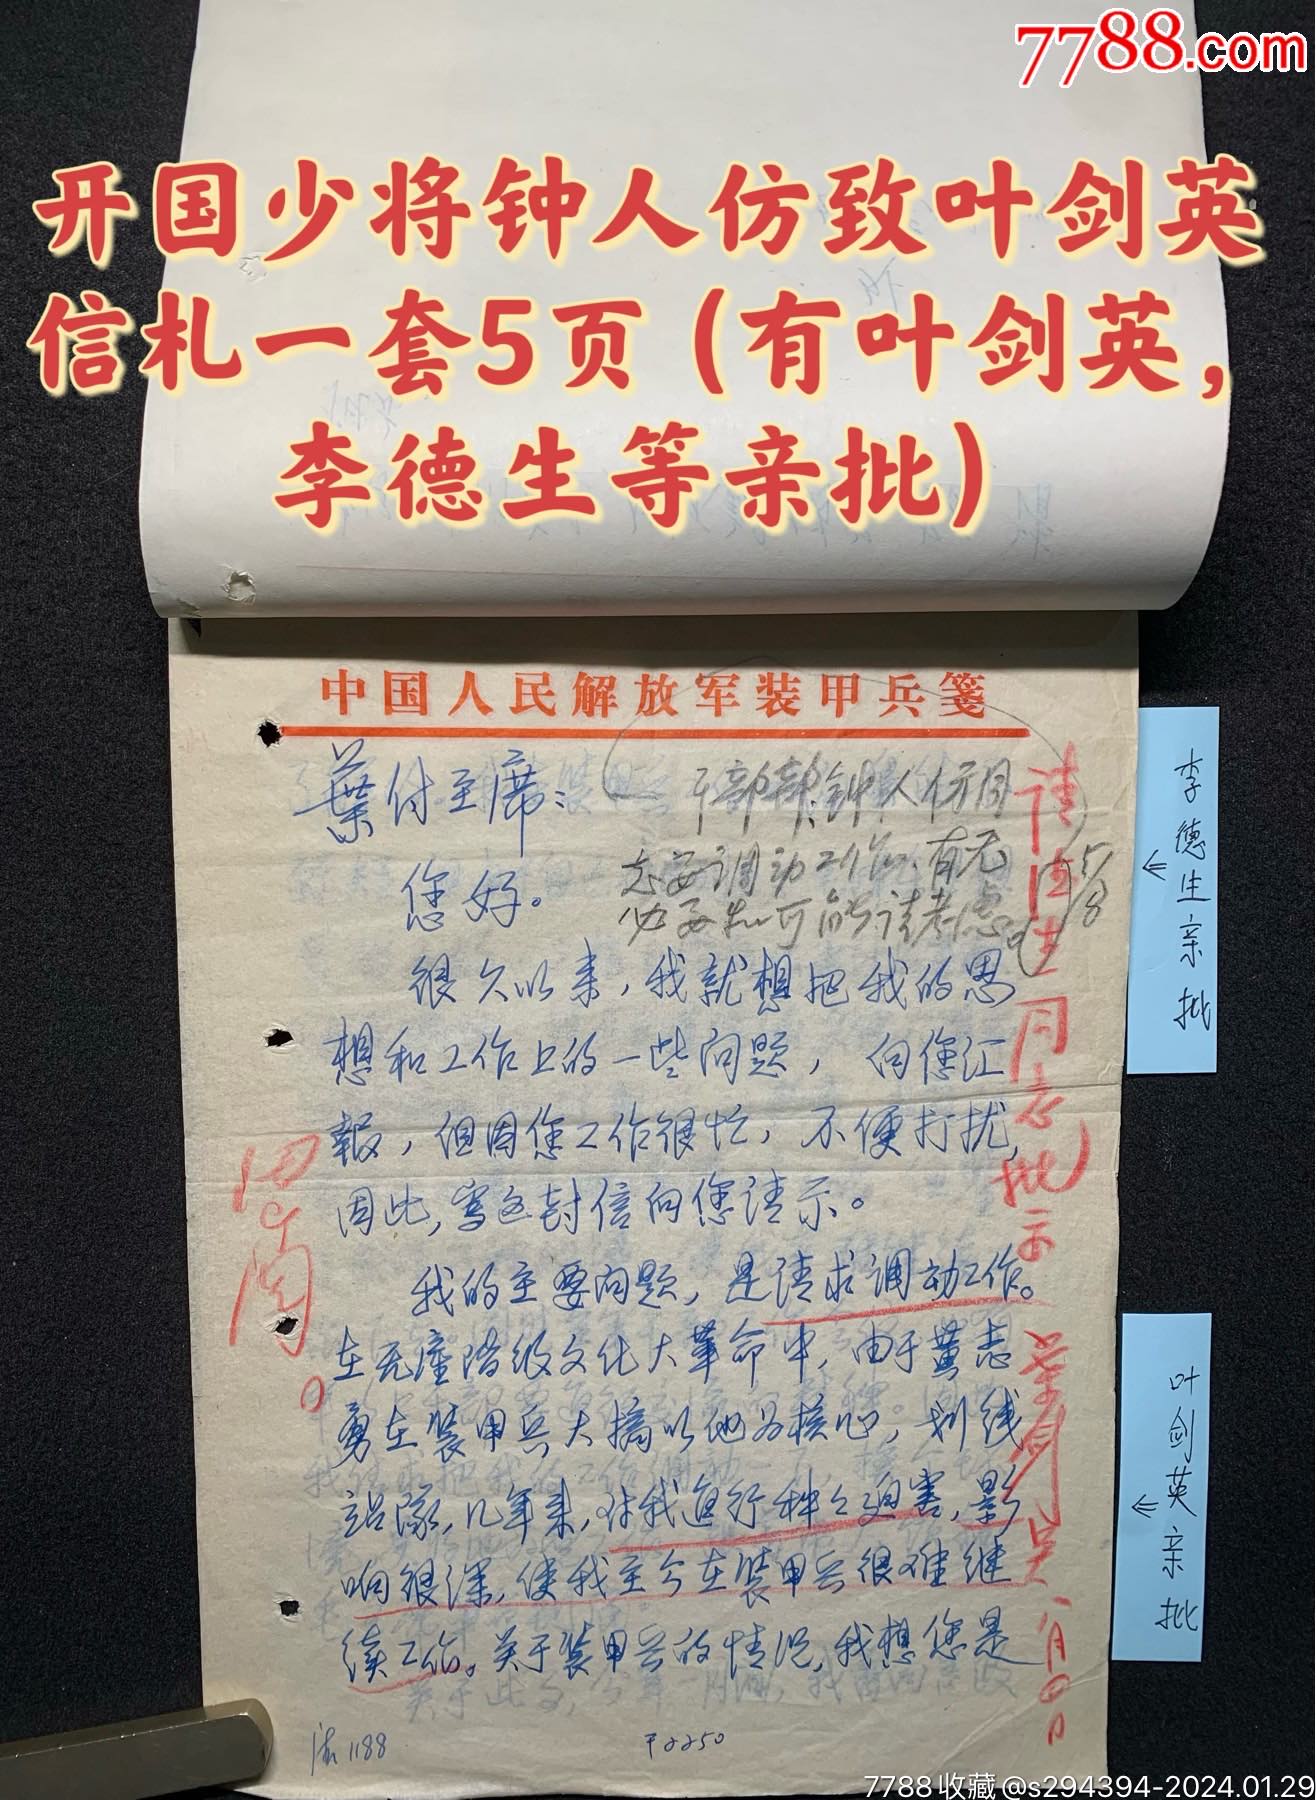 7788.com
开国少将钟人仿致叶剑英
信札一套5页（有叶剑英，
李德生等亲批）
中国人民解放军装甲兵笺
葉付主席：
您好。
很久以来，我就想把我的思
想和工作上的一些问题，向您汇
報，但因您工作很忙，不便打扰，
因此，写这封信向您请示。
我的主要问题，是请求调动工作。
在无产阶级文化大革命中，由于黄志
勇在装甲兵大搞以他为核心，划线
站隊，几年来，对我进行种々迫害，影
响很深，使我至今在装甲兵很难继
续工作。关于装甲兵的情况，我想您是
干部部：钟人仿同
志要调动工作，有无
必要和可能请考虑。
5/8
请德生同志批示
葉剑英
已阅。
李德生亲批
叶剑英亲批
1188
2250
7788收藏@s294394-2024.01.29